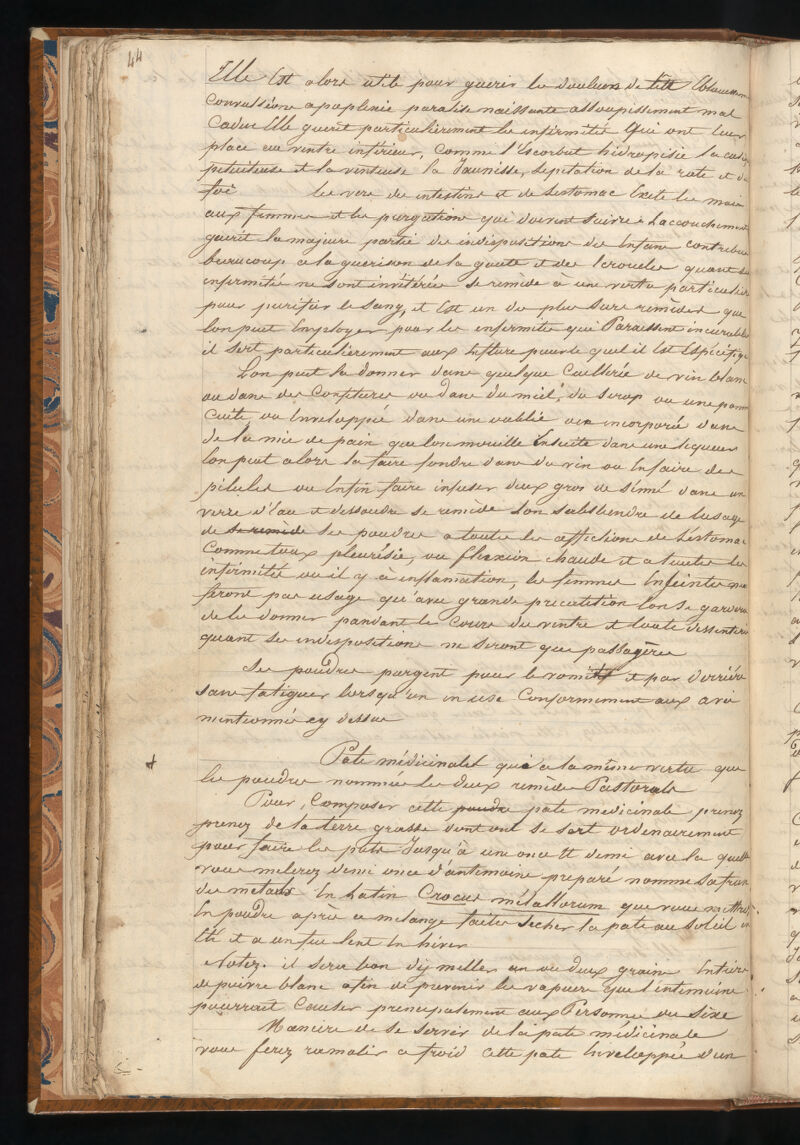 44
Elle Est alors utile pour guerir les douleurs de tete Eblouissem
Convulsions apoplexie paralisie naissante assoupissement mal
Caduc Elle guerit particulierement les infirmités Qui ont leur
place au ventre inferieur, Comme l'Escorbut hidropisie la
pituiteuse et la venteuse la Jaunisse, lepitation de la rate et du
foi les vers des intestins et de Lestomac Excite les mois
aux femmes et les purgations qui doivent suivre Laccouchement
guerit la majeure partie des indispositions des Enfans contribue
beaucoup a la guerison de la goute et des Ecrouelles quant
infirmités ne sont invétérées se remède à une vertu particuliere
pour purifier le sang, et Est un des plus surs remèdes que
lon puit Employer pour les infirmités qui Paraissent incurables
il sert particulierement aux pour le quel il Est Espécifique
Lon peut la donner dans quelque Cuillerée de vin blanc
ou dans des Confitures ou dans du miel, du sirop ou une pomme
Cuite, ou Enveloppée dans une oublié ou incorporée dans
de la mie de pain que lon mouille Ensuite dans une liqueur
lon peut alors la faire fondre dans du vin ou En faire des
pilules ou Enfin faire infuser deux gros de séné dans un
verre d'Eau et dessoudre se remède Lon sabstiendra de lusage
de se remède ses poudres a toutes les affections de Lestomac
Comme toux pleurésie, ou fluxion chaude et a toutes les
infirmités ou il y à inflamation, les femmes Enfeintes ne
feront pas usage qu'avec grande precotition lon se gardera
de les donner pandant le Cours du ventre et toute dissenterie
quant ses indispositions ne seront que passagères
Ses poudres purgent pour le vomitif et par derrière
sans fatiguer lorsqu'on in use Conformement aux avis
mentionnés cy dessus
+ Pate médicinalet qui a la même vertu que
les poudres nommées les deux remède Pastorals
Pour, Composer cette poudre pate medicinale prenez
prenez de la terre grasse dont ont se sert ordinairement
pour faire les pots Jusqu'à une once Et demi avec la quelle
vous melerez demi once d'antimoine preparé nomme Safran
des metaux En Latin Crocus métallorum que vous mettrez
En poudre après ce melange faites secher la pate au soleil en
Eté et a un feu lent En hiver
Notez. il sera bon d'y meller un ou deux grains Entiers
de poivre blanc afin de prevenir les vapeurs que l'antimoine
pourrait Causer principalement aux Personnes du Sexe
Maniere de se servir de la pate médicinale
vous ferez ramolir a froid cette pate Enveloppée d'un